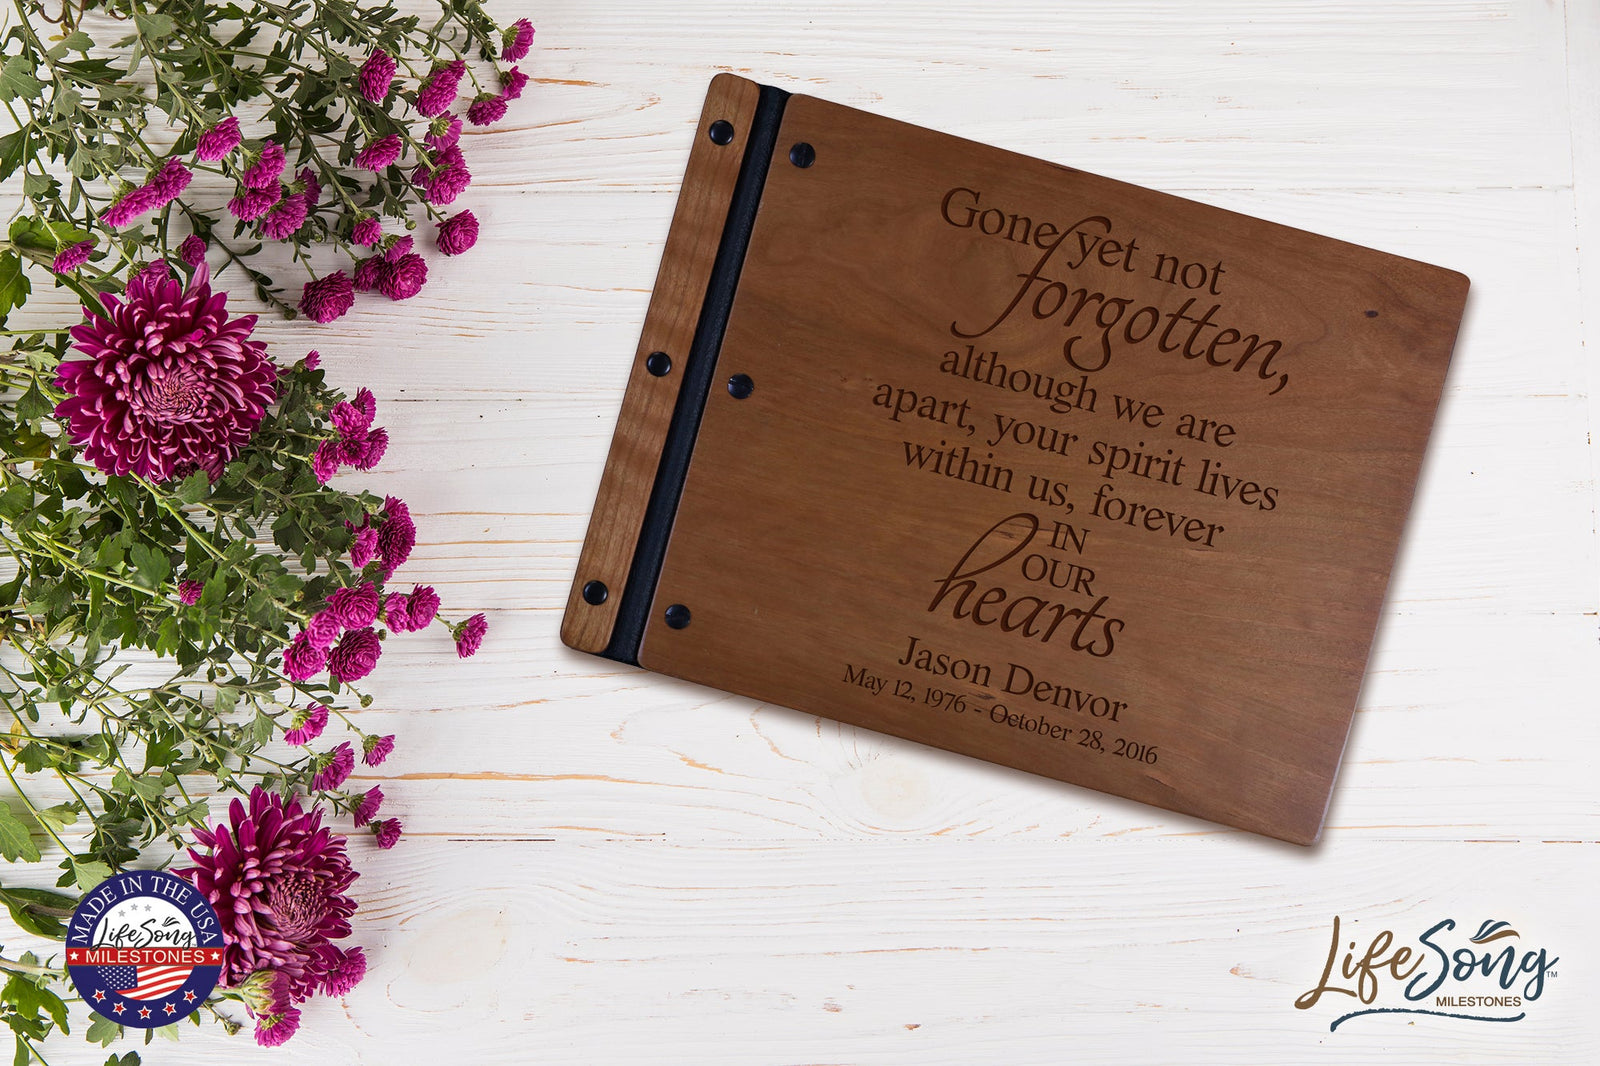 Gone yet not
forgotten,
although we are
apart, your spirit lives
within us, forever
IN
OUR
hearts
Jason Denvor
May 12, 1976 - October 28, 2016
MADE IN THE USA
LifeSong
MILESTONES
LifeSong™
MILESTONES